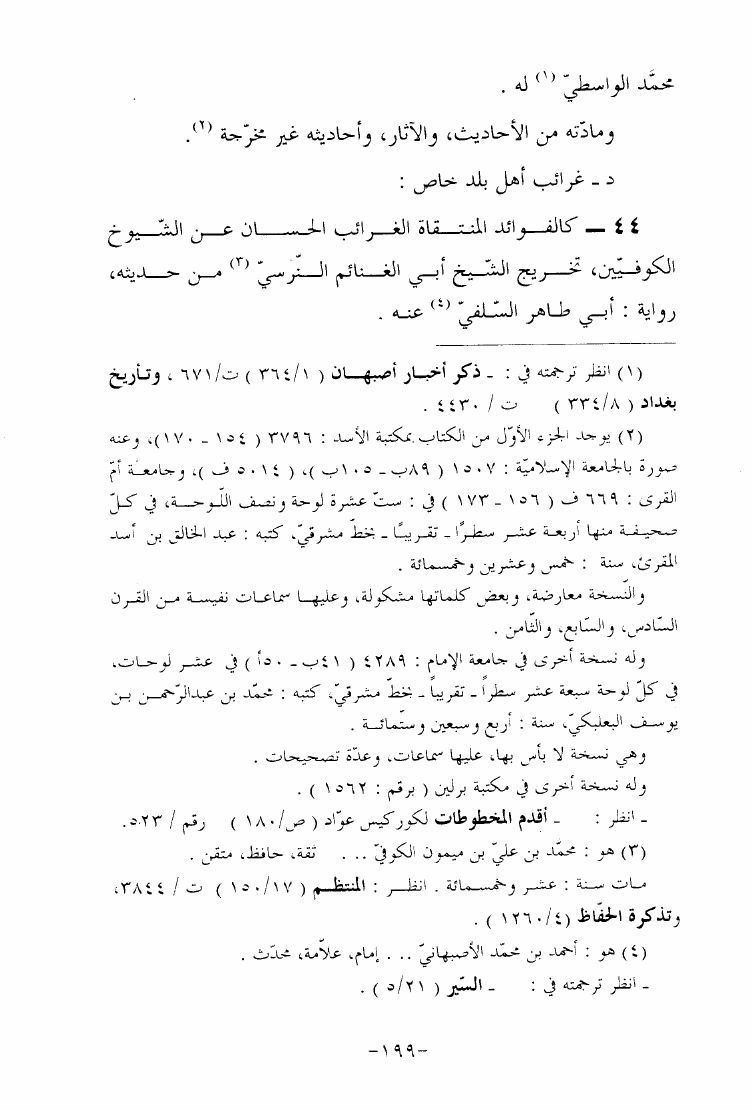 محمَّد الواسطيّ (١) له .
ومادّته من الأحاديث، والآثار، وأحاديثه غير مخرّجة (٢).
د ـ غرائب أهل بلد خاص :
٤٤ ــ كالفــوائد المنتــقاة الغــرائب الحســان عــن الشّــيوخ
الكوفــيّين، تخــريج الشّــيخ أبــي الغــنائم الــنَّرسيّ (٣) مــن حــديثه،
رواية : أبــي طــاهر السِّلفيّ (٤) عنــه .
(١) انظر ترجمته في : ـ ذكر أخبــار أصبهــان ( ٣٦٤/١ ) ت/٦٧١ ، وتأريخ
بغداد ( ٣٣٤/٨ ) ت / ٤٤٣٠ .
(٢) يوجد الجزء الأوّل من الكتاب بمكتبة الأسد : ٣٧٩٦ ( ١٥٤ ـ ١٧٠)، وعنه
صورة بالجامعة الإسلاميّة : ١٥٠٧ ( ٨٩ب ـ ١٠٥ب )، ( ٥٠١٤ ف )، وجامعــة أمّ
القرى : ٦٦٩ ف ( ١٥٦ ـ ١٧٣ ) في : ستّ عشرة لوحة ونصف اللّوحــة، في كــلّ
صحيفــة منها أربعــة عشــر سطــرًا ـ تقريبــًا ـ بخطّ مشرقيّ، كتبه : عبد الخالق بن أسد
المقرئ، سنة : خمس وعشرين وخمسمائة .
والنّسخة معارضة، وبعض كلماتها مشكولة، وعليهــا سماعــات نفيســة مــن القــرن
السّادس، والسّابع، والثّامن .
وله نسخة أخرى في جامعة الإمام : ٤٢٨٩ ( ٤١ب ـ ٥٠أ ) في عشــر لوحــات،
في كلّ لوحة سبعة عشر سطراً ـ تقريباً ـ بخطّ مشرقيّ، كتبه : محمّد بن عبدالرّحمــن بــن
يوســف البعلبكيّ، سنة : أربع وسبعين وستّمائــة .
وهي نسخة لا بأس بها، عليها سماعات، وعدّة تصحيحات .
وله نسخة أخرى في مكتبة برلين ( برقم : ١٥٦٢ ) .
ـ انظر : ـ أقدم المخطوطات لكوركيس عوّاد ( ص/١٨٠ ) رقم / ٥٢٣.
(٣) هو : محمّد بن عليّ بن ميمون الكوفيّ . . . ثقة، حافظ، متقن .
مــات سنة : عشــر وخمســمائة . انظــر : المنتظــم ( ١٥٠/١٧ ) ت / ٣٨٤٤،
وتذكرة الحفّاظ (١٢٦٠/٤ ) .
(٤) هو : أحمد بن محمّد الأصبهانيّ . . . إمام، علاّمة، محدّث .
ـ انظر ترجمته في : ـ السّير ( ٥/٢١ ) .
-١٩٩-